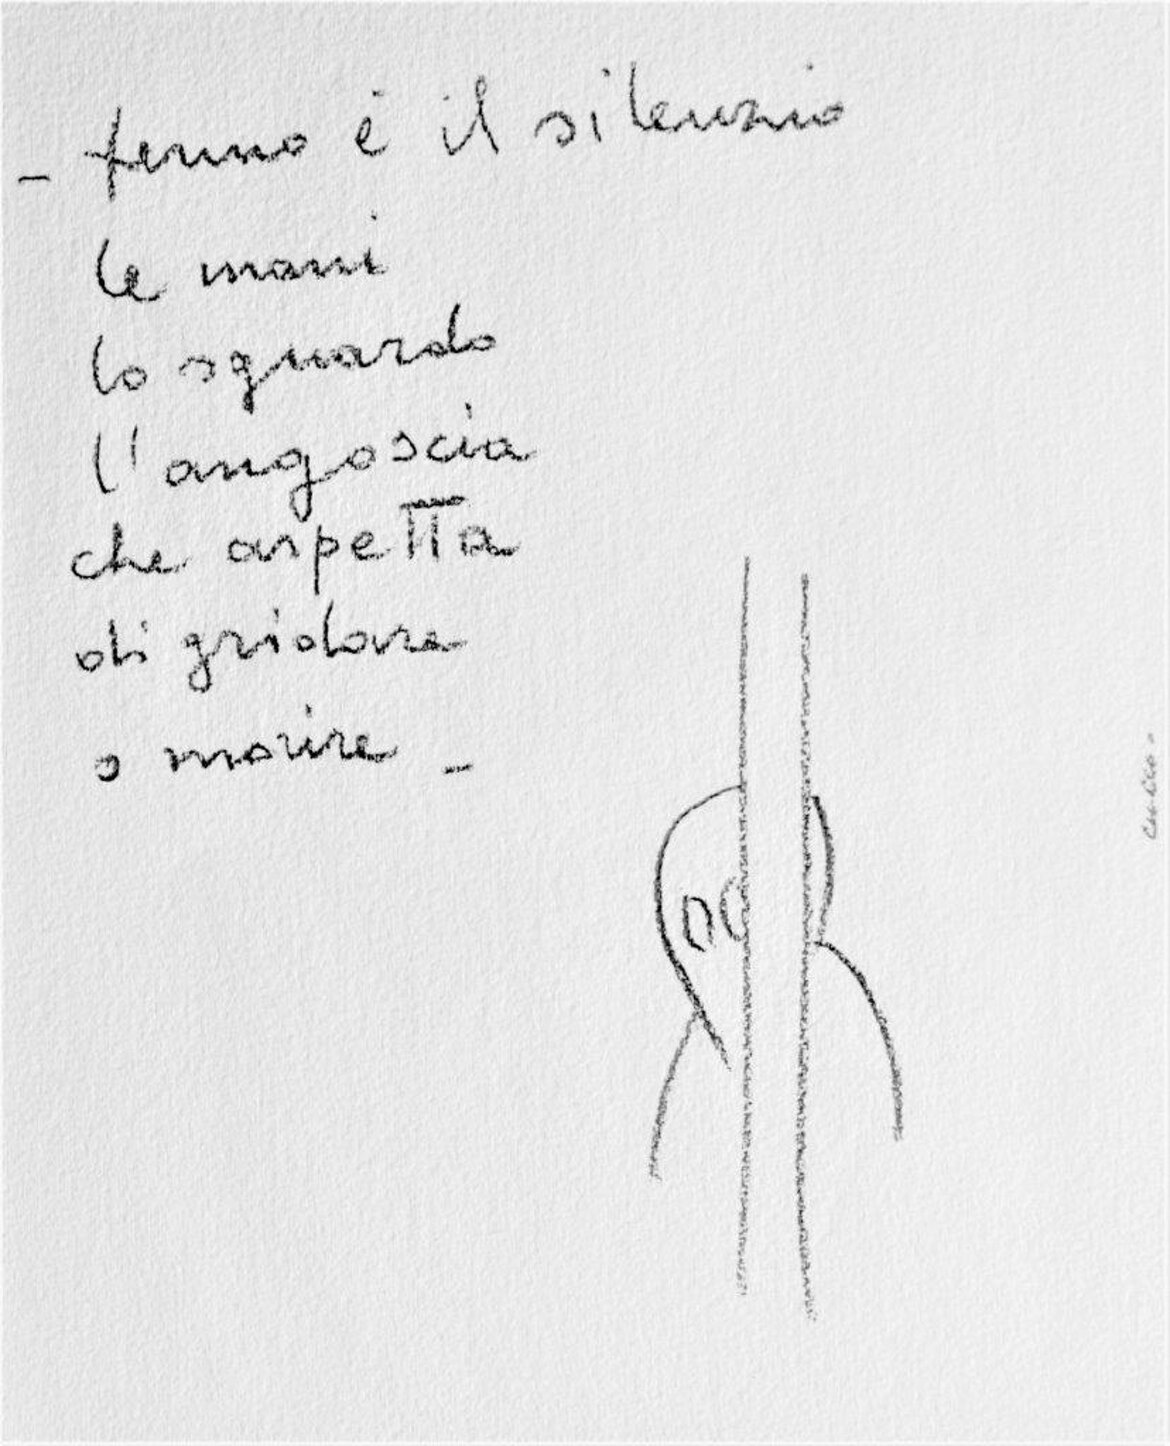 - fermo è il silenzio
le mani
lo sguardo
l'angoscia
che aspetta
di gridare
o morire -